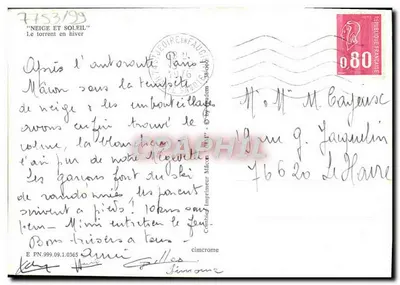 7753/99
"NEIGE ET SOLEIL"
Le torrent en hiver
Après l'autoroute Paris
Mâcon sous la tempête
de neige & les embouteillages
avons enfin trouvé le
calme, la blancheur &
l'air pur de notre
Les garçons font du ski
de randonnée les parents
suivent à pieds! 10 kms sous
peu - Mimi entretien le feu.
Bons baisers à tous -
Simone
E PN 999.09.1.0365
cimcrome
Combier Imprimeur Mâcon
REPUBLIQUE FRANÇAISE
0,80
M. & Mme M.
19 rue G. Jacquelin
76620 Le Havre